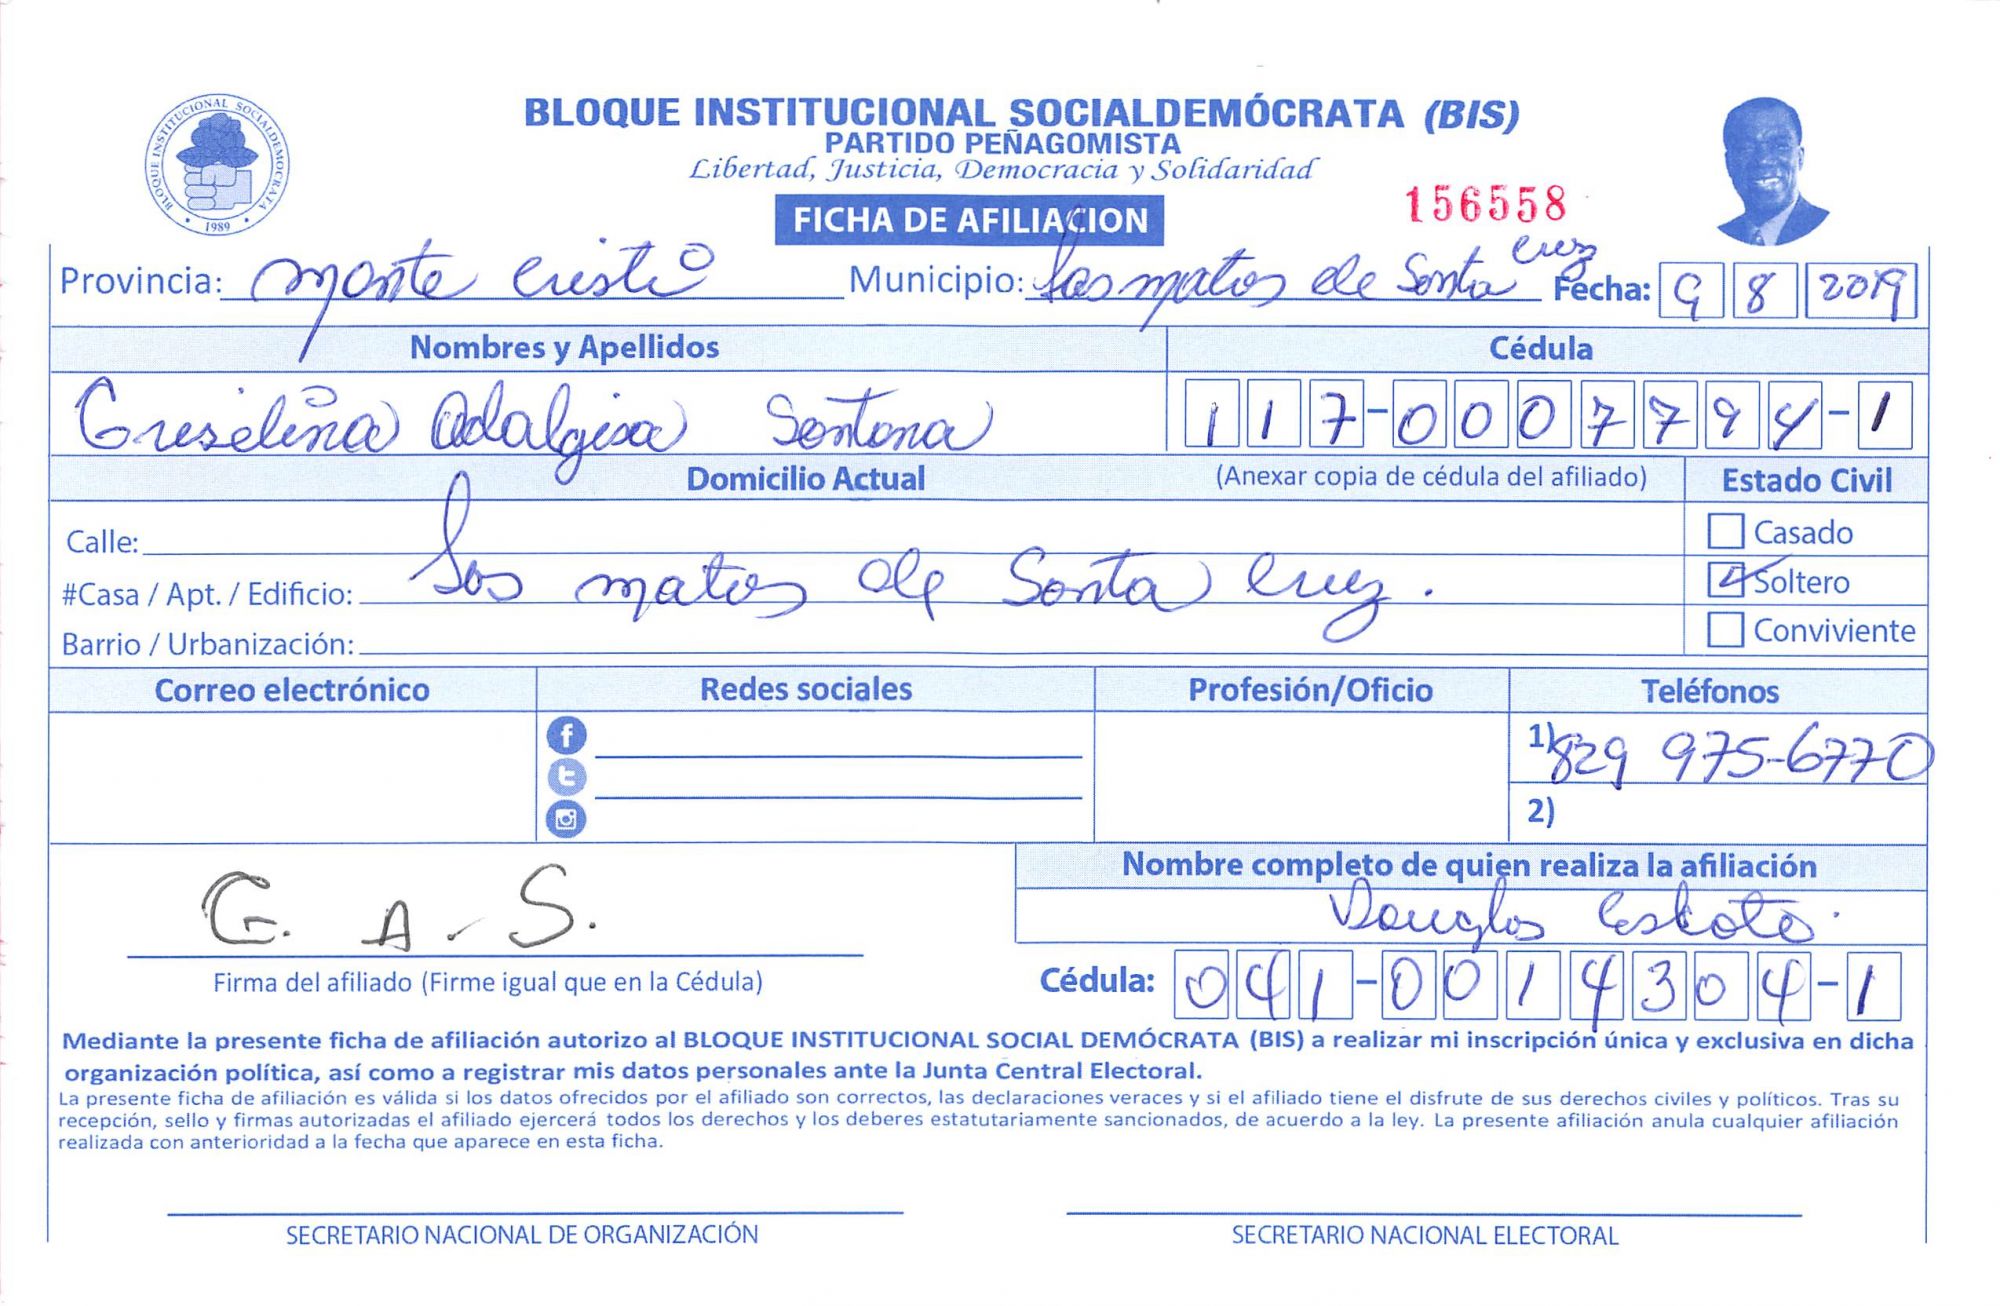 BLOQUE INSTITUCIONAL SOCIALDEMÓCRATA (BIS)
PARTIDO PEÑAGOMISTA
Libertad, Justicia, Democracia y Solidaridad
BLOQUE INSTITUCIONAL SOCIALDEMOCRATA
1989
FICHA DE AFILIACION
156558
Provincia: Monte Cristi Municipio: Las matas de Santa Cruz Fecha: 9 8 2019
Nombres y Apellidos Cédula
Griselina Adalgisa Santana 117-0007794-1
Domicilio Actual (Anexar copia de cédula del afiliado) Estado Civil
Calle: Casado
Las matas de Santa Cruz.
#Casa / Apt. / Edificio: Soltero
Barrio / Urbanización: Conviviente
Correo electrónico Redes sociales Profesión/Oficio Teléfonos
1) 829 975-6770
2)
Nombre completo de quien realiza la afiliación
Douglas
G. A. S.
Firma del afiliado (Firme igual que en la Cédula) Cédula: 041-0014304-1
Mediante la presente ficha de afiliación autorizo al BLOQUE INSTITUCIONAL SOCIAL DEMÓCRATA (BIS) a realizar mi inscripción única y exclusiva en dicha
organización política, así como a registrar mis datos personales ante la Junta Central Electoral.
La presente ficha de afiliación es válida si los datos ofrecidos por el afiliado son correctos, las declaraciones veraces y si el afiliado tiene el disfrute de sus derechos civiles y políticos. Tras su
recepción, sello y firmas autorizadas el afiliado ejercerá todos los derechos y los deberes estatutariamente sancionados, de acuerdo a la ley. La presente afiliación anula cualquier afiliación
realizada con anterioridad a la fecha que aparece en esta ficha.
SECRETARIO NACIONAL DE ORGANIZACIÓN SECRETARIO NACIONAL ELECTORAL